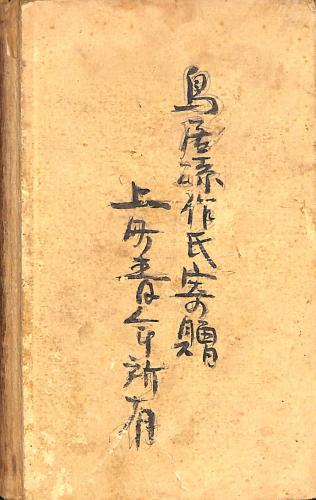 鳥居孫作氏寄贈
上丹青年会所有